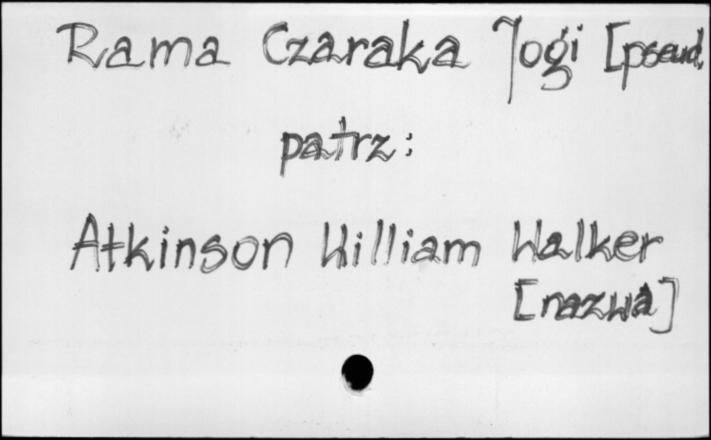 Rama Czaraka Jogi [pseud.
patrz:
Atkinson William Walker
[nazwa]